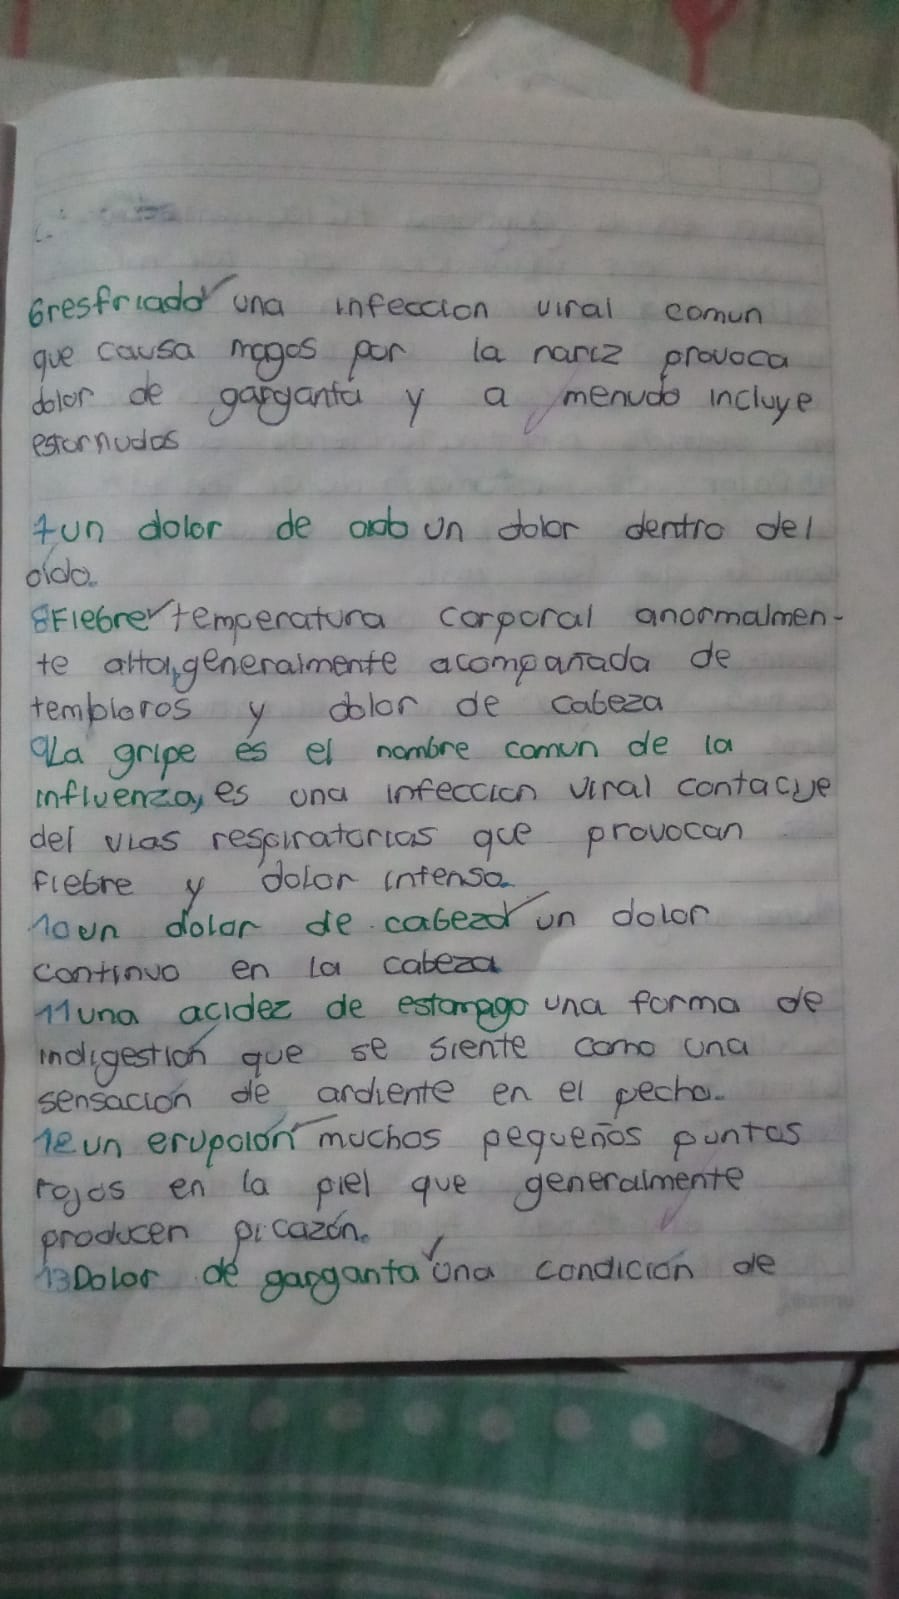 6resfriado una infeccion viral comun
que causa mogos por la nariz provoca
dolor de garganta y a menudo incluye
estornudos
7un dolor de oido un dolor dentro del
oido.
8Fiebre temperatura corporal anormalmen-
te alta, generalmente acompañada de
tembloros y dolor de cabeza
9La gripe es el nombre comun de la
influenza, es una infeccion viral contacije
del vias respiratorias que provocan
fiebre y dolor intenso.
10un dolor de cabeza un dolor
continuo en la cabeza
11una acidez de estomago una forma de
indigestión que se siente como una
sensación de ardiente en el pecho.
12un erupción muchos pequeños puntos
rojos en la piel que generalmente
producen picazón.
13Dolor de garganta una condición de